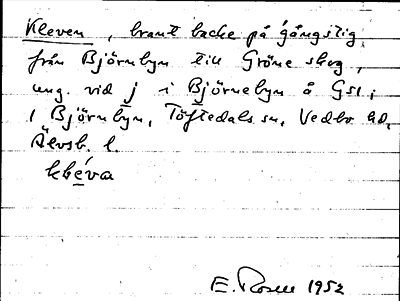 Kleven, brant backe på gångstig
från Björnbyn till Gröne skog,
ung. vid j i Björnebyn å Gsl;
i Björnbyn, Töftedals sn, Vedbo hd,
Älvsb. l.
E. Rosell 1952